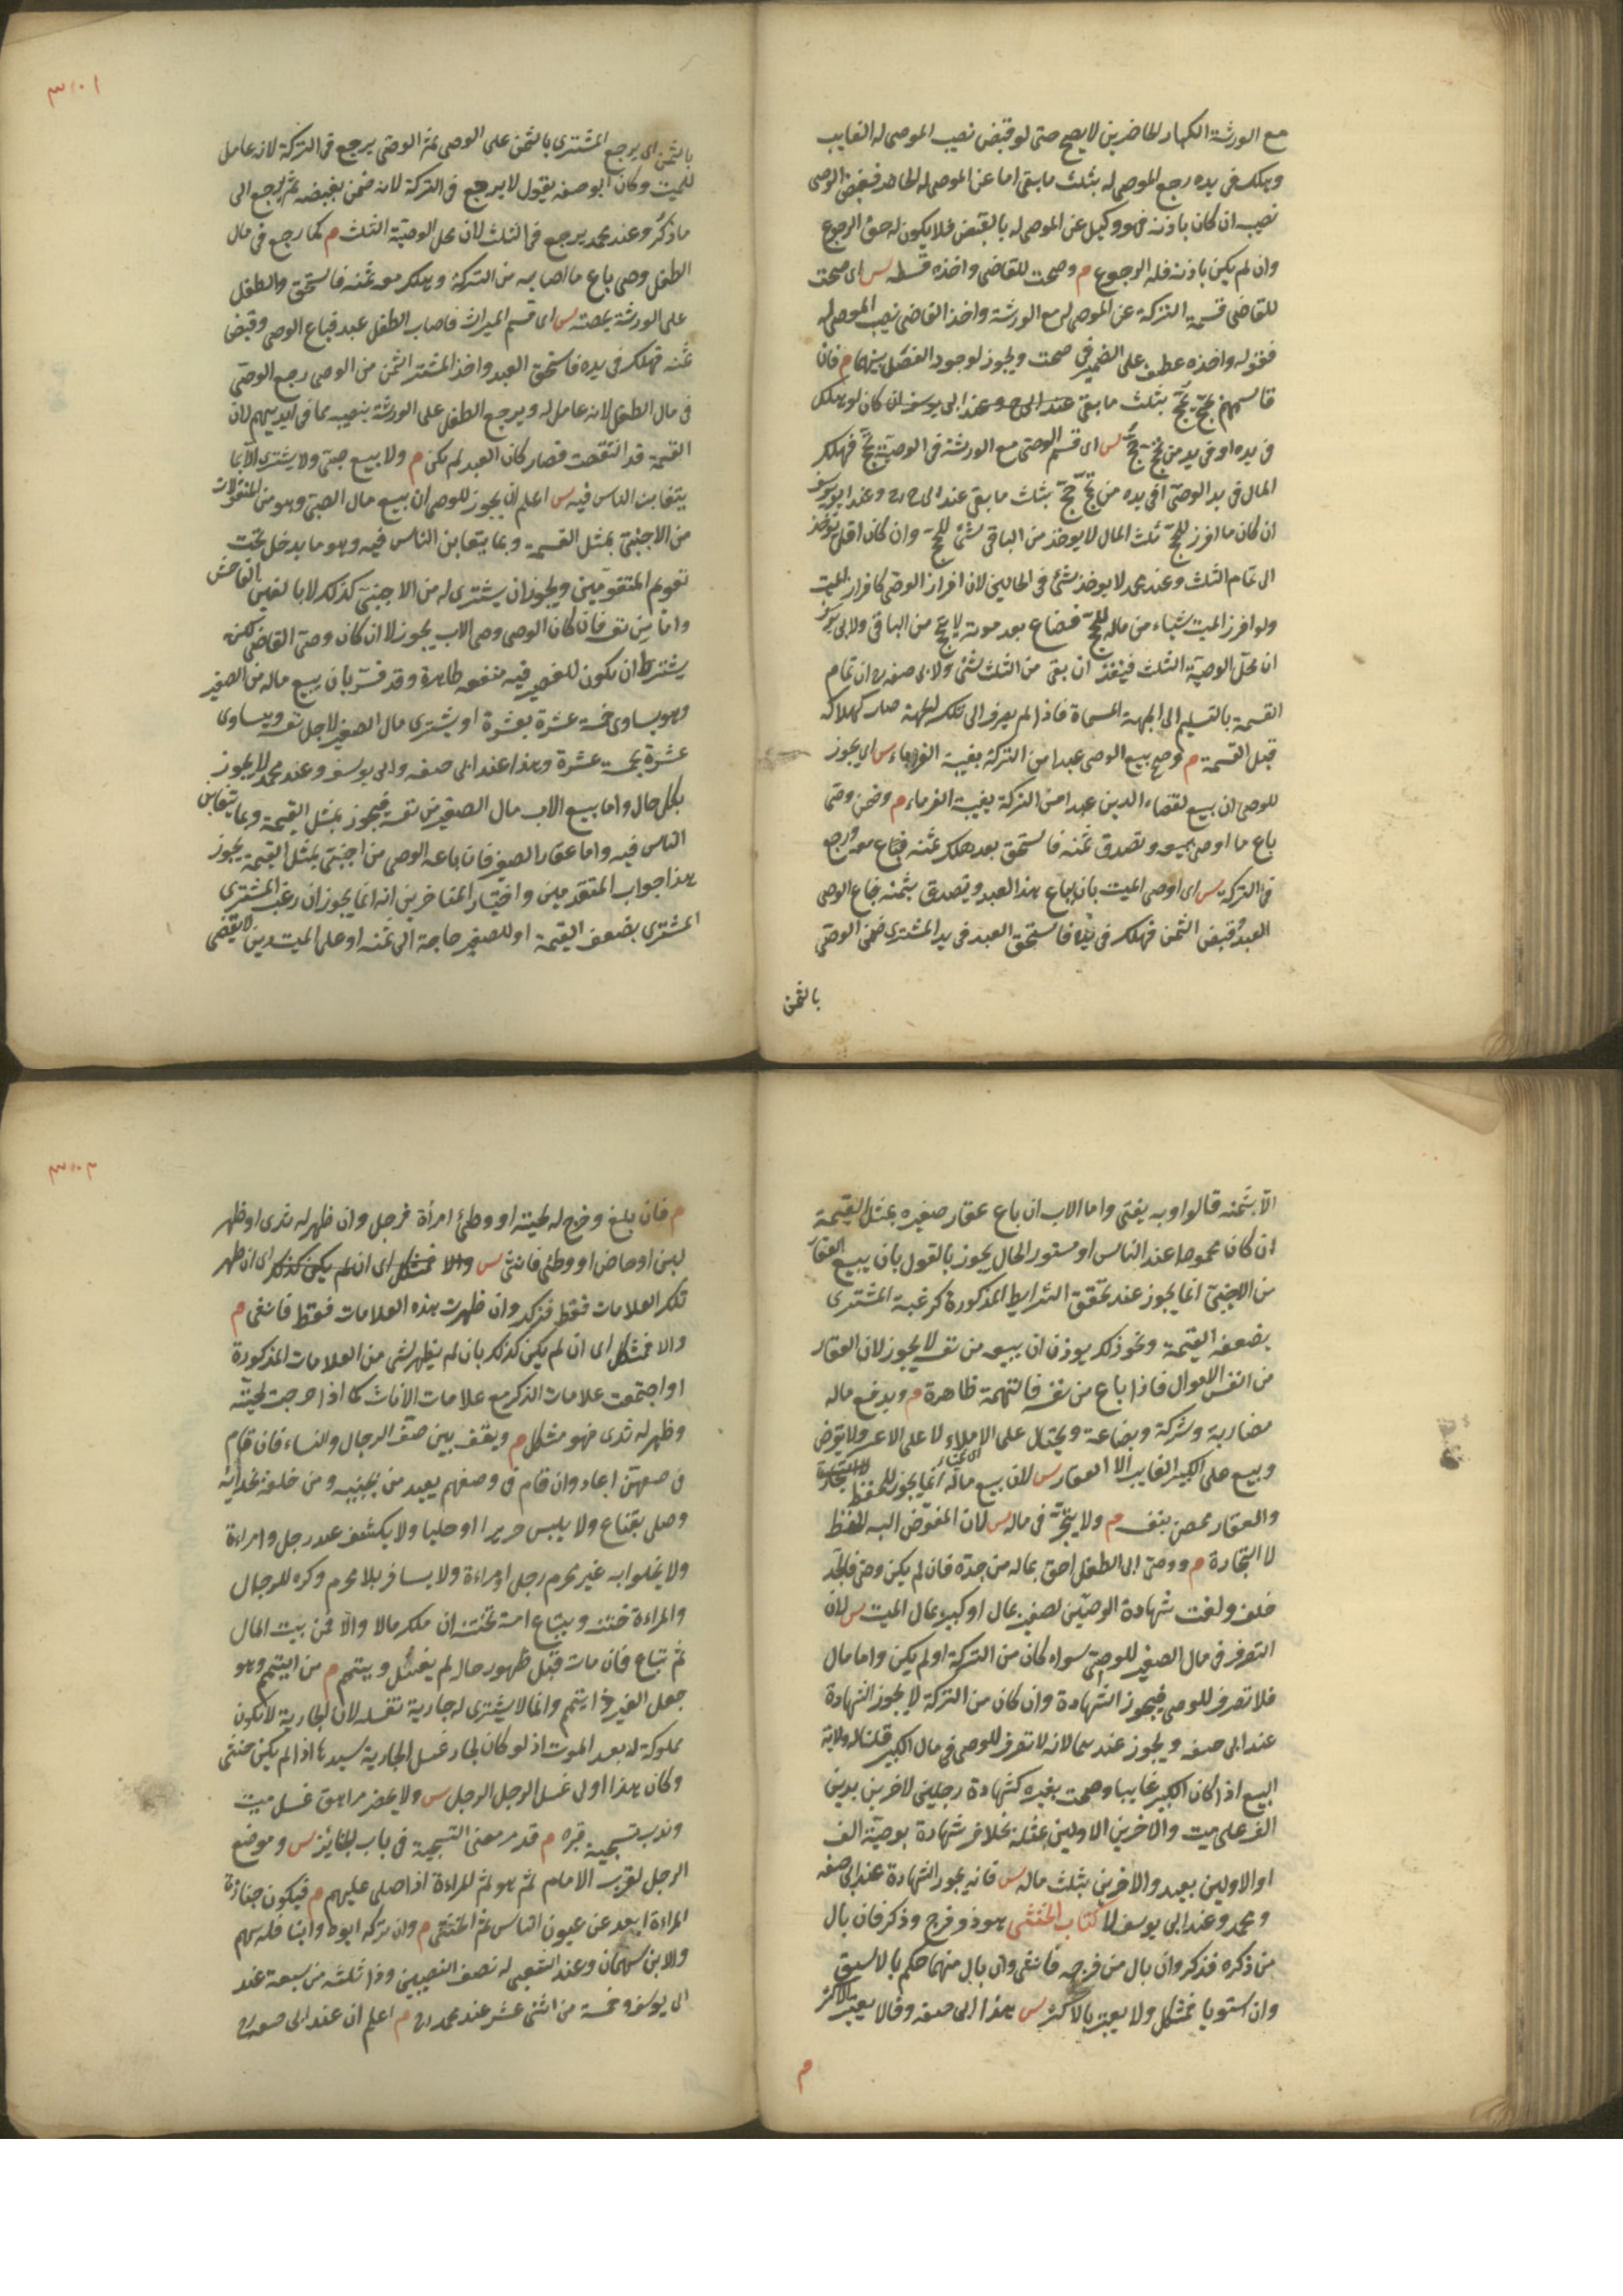 مع الورثة الكبار الحاضرين لا يصح حتى لو قبض نصيب الموصى له الغايب
وهلك فى يده رجع الموصى له بثلث ما بقى اما عن الموصى له الحاضر فقبض الوصى
نصيبه ان كان باذنه فهو وكيل عن الموصى له بالقبض فلا يكون له حق الرجوع
وان لم يكن باذنه فله الرجوع م وصحت للقاضى واخذه قسطه س اى صحت
للقاضى قسمة التركة عن الموصى له مع الورثة واخذ القاضى نصيب الموصى له
فقوله واخذه عطف على الضمير فى صحت ويجوز لوجود الفصل بينهما م فان
قاسمهم بحج حج بثلث ما بقى عند ابى ح وعند ابى يوسف ان كان لو هلك
فى يده او فى يد من يحج س اى قسم الوصى مع الورثة فى الوصية بحج فهلك
المال فى يد الوصى او فى يده من يحج حج بثلث ما بقى عند ابى ح رح وعند ابى يوسف
ان كان ما افرز للحج ثلث المال لا يوخذ من الباقى شئ للحج وان كان اقل يوخذ
الى تمام الثلث وعند محمد لا يوخذ شئ فى الحالين لان افراز الوصى كافراز الميت
ولو افرز الميت شياء من ماله للحج فضاع بعد موته لا يحج من الباقى ولابى يوسف
ان محل الوصية الثلث فينفذ ان بقى من الثلث شئ ولابى حنيفه رح ان تمام
القسمة بالتسليم الى الجهة المسماة فاذا لم يصرف الى تلك الجهة صار كهلاكه
قبل القسمة م وصح بيع الوصى عبدا من التركة بغيبة الغرماء س اى يجوز
للوصى ان يبيع لقضاء الدين عبدا من التركة بغيبة الغرماء م وضمن وصى
باع ما اوصى ببيعه وتصدق ثمنه فاستحق بعد هلك ثمنه فباع معه ورجع
فى التركة س اى اوصى الميت بان يباع هذا العبد ويتصدق بثمنه فباع الوصى
العبد وقبض الثمن فهلك فى يده فاستحق العبد فى يد المشترى ضمن الوصى
بالثمن
٣٠١
بالثمن اى يرجع المشترى بالثمن على الوصى ثم الوصى يرجع فى التركة لانه عامل
للميت وكان ابو حنيفه يقول لا يرجع فى التركة لانه ضمن بقبضه ثم يرجع الى
ما ذكر وعند محمد يرجع فى الثلث لان محل الوصية الثلث م كما رجع فى مال
الطفل وصى باع ما اصابه من التركة وهلك معه ثمنه فاستحق والطفل
على الورثة بحصته س اى قسم الميراث فاصاب الطفل عبد فباع الوصى وقبض
ثمنه فهلك فى يده فاستحق العبد واخذ المشترى الثمن من الوصى رجع الوصى
فى مال الطفل لانه عامل له ويرجع الطفل على الورثة بنصيبه مما فى ايديهم لان
القسمة قد انتقضت فصار كان العبد لم يكن م ولا يبيع وصى ولا يشترى الا بما
يتغابن الناس فيه س اعلم ان يجوز للوصى ان يبيع مال الصبى وهو من المنقولات
من الاجنبى بمثل القيمة وبما يتغابن الناس فيه وهو ما يدخل تحت
تقويم المتقومين ويجوز ان يشترى له من الاجنبى كذلك لا بالغبن الفاحش
واما من نفسه فان كان الوصى وصى الاب يجوز لا ان كان وصى القاضى لكن
يشترط ان يكون للصغير فيه منفعه ظاهرة وقد فسر بان يبيع ماله من الصغير
وهو يساوى خمسة عشرة بعشرة او يشترى مال الصغير لاجل نفسه ويساوى
عشرة بخمسة عشرة وهذا عند ابى حنيفه وابى يوسف وعند محمد لا يجوز
بكل حال واما بيع الاب مال الصغير من نفسه فيجوز بمثل القيمة وبما يتغابن
الناس فيه واما عقار الصغير فان باعه الوصى من اجنبى بمثل القيمة يجوز
هذا جواب المتقدمين واختيار المتاخرين انه انما يجوز ان رغب المشترى
المشترى بضعف القيمة او للصغير حاجة الى ثمنه او على الميت دين لا يقضى
الا بثمنه قالوا وبه يفتى واما الاب ان باع عقار صغيره بمثل القيمة
ان كان محمودا عند الناس او مستور الحال يجوز بالقول بان يبيع العقار
من الاجنبى انما يجوز عند تحقق الشرايط المذكورة كرغبة المشترى
بضعف القيمة ونحو ذلك يوذن ان بيعه من نفسه لا يجوز لان العقار
من انفس الاموال فاذا باع من نفسه فالتهمة ظاهرة م ويدفع ماله
مضاربة وشركة وبضاعة ويحتال على الاملاء لا على الاعسر ولا يقرض
ويبيع على الكبير الغايب الا العقار س لان بيع ماله انما يجوز للحفظ
والعقار محصن بنفسه م ولا يتجر فى ماله س لان المفوض اليه الحفظ
لا التجارة م ووصى ابى الطفل احق بماله من جده فان لم يكن وصى فالجد
فلف ولغت شهادة الوصيين لصغير بمال او كبير بمال الميت س لان
التصرف فى مال الصغير للوصى سواء كان من التركة او لم يكن واما مال
فلا تصرف للوصى فيجوز الشهادة وان كان من التركة لا يجوز الشهادة
عند ابى حنيفه ويجوز عندهما لانه لا تصرف للوصى فى مال الكبير قلنا له ولاية
البيع اذا كان الكبير غايبا وصحت بغيره كشهادة رجلين لاخرين بدين
الف على ميت والاخرين الاولين بمثله بخلاف شهادة بوصية الف
او الاولين بعبد والاخرين بثلث ماله س فانه يجوز الشهادة عند ابى حنيفه
ومحمد وعند ابى يوسف لا كتاب الخنثى هو ذو فرج وذكر فان بال
من ذكره فذكر وان بال من فرجه فانثى وان بال منهما حكم بالاسبق
وان استويا فمشكل ولا يعتبر بالاكثر س هذا ابى حنيفه وقالا يعتبر الاكثر
م
٣٠٢
م فان بلغ وخرج له لحيته او وطئ امرأة فرجل وان ظهر له ثدى او ظهر
لبن او حاض او وطئ فانثى س والا فمشكل اى ان لم يكن كذلك اى ان ظهر
تلك العلامات فقط فذكر وان ظهرت هذه العلامات فقط فانثى م
والا فمشكل اى ان لم يكن كذلك بان لم يظهر شى من العلامات المذكورة
او اجتمعت علامات الذكر مع علامات الاناث كما اذا خرجت لحيته
وظهر له ثدى فهو مشكل م ويقف بين صف الرجال والنساء فان قام
فى صفهن اعاد وان قام فى وصفهم يعيد من بجنبيه ومن خلفه بحذايه
وصلى بقناع ولا يلبس حريرا او حليا ولا يكشف عند رجل وامراءة
ولا يخلوا به غير محرم رجل او امراءة ولا يسافر بلا محرم وكره للرجال
والمراءة ختنه ويبتاع امة تختنه ان ملك مالا والا فمن بيت المال
ثم تباع فان مات قبل ظهور حاله لم يغسل وييمم م من التيمم وهو
جعل الغير ذا تيمم وانما لا يشترى له جارية تغسله لان الجارية لا تكون
مملوكة له بعد الموت اذ لو كان لجاز غسل الجارية سيدها اذا لم يكن خنثى
وكان هذا اولى غسل الرجل الرجل س ولا يحضر مراهق غسل ميت
وندب تسجية قبره م قد مر معنى التسجية فى باب الجنايز س وموضع
الرجل لقرب الامام ثم هو ثم المراءة اذا صلى عليهم م فيكون جنازة
المراءة ابعد عن عيون الناس ثم الخنثى م وان تركه ابوه وابنا فله سهم
والابن سهمان وعند الشعبى له نصف النصيبين وذا ثلثه من سبعة عند
ابى يوسف وخمسة من اثنى عشر عند محمد رح م اعلم ان عند ابى حنيفه رح